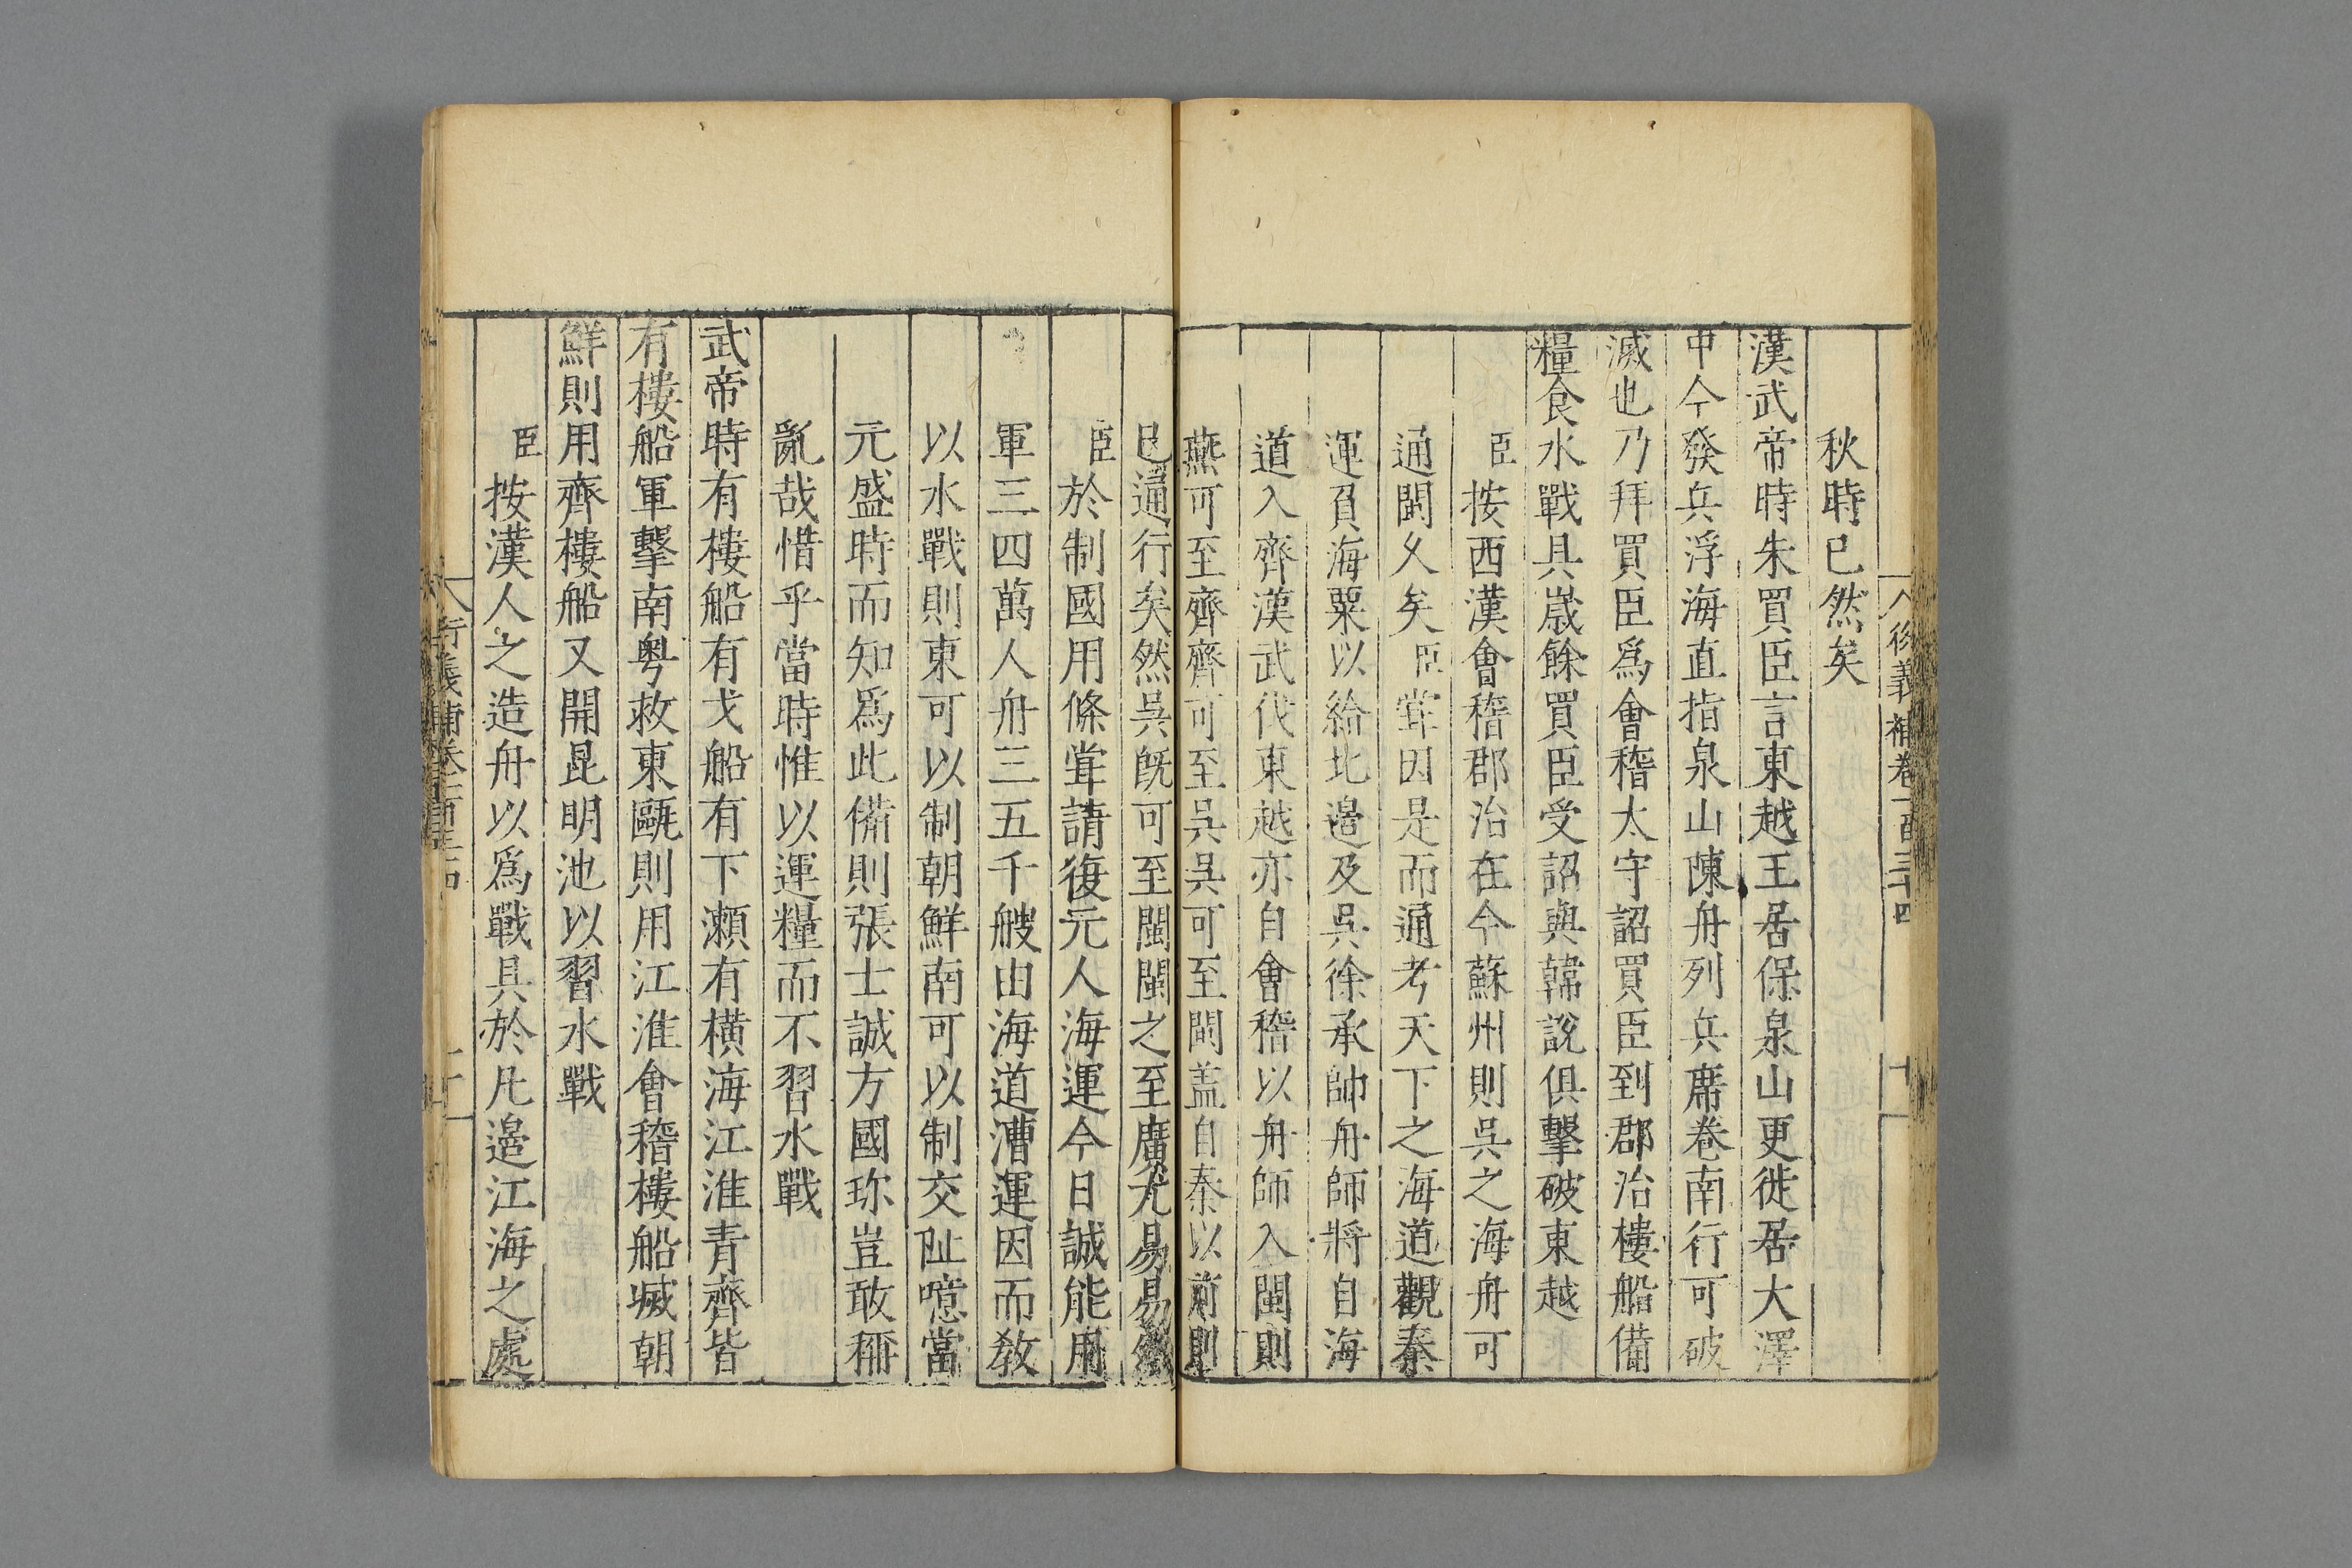 秋時已然矣
漢武帝時朱買臣言東越王居保泉山更徙居大澤
中今發兵浮海直指泉山陳舟列兵席卷南行可破
滅也乃拜買臣爲會稽太守詔買臣到郡治樓船備
糧食水戰具歲餘買臣受詔與韓説俱擊破東越
臣按西漢會稽郡治在今蘇州則吳之海舟可
通閩乆矣臣甞因是而通考天下之海道觀秦
運負海粟以給北邉及吳徐承帥舟師將自海
道入齊漢武伐東越亦自會稽以舟師入閩則
燕可至齊齊可至吳吳可至閩盖自秦以前則
已通行矣然吳旣可至閩閩之至廣尤易易
臣於制國用條甞請復元人海運今日誠能用
軍三四萬人舟三五千艘由海道漕運因而敎
以水戰則東可以制朝鮮南可以制交阯噫當
元盛時而知爲此備則張士誠方國珎豈敢稱
亂哉惜乎當時惟以運糧而不習水戰
武帝時有樓船有戈船有下瀬有橫海江淮青齊皆
有樓船軍擊南粤救東甌則用江淮會稽樓船㓕朝
鮮則用齊樓船又開昆明池以習水戰
臣按漢人之造舟以爲戰具於凡邉江海之處